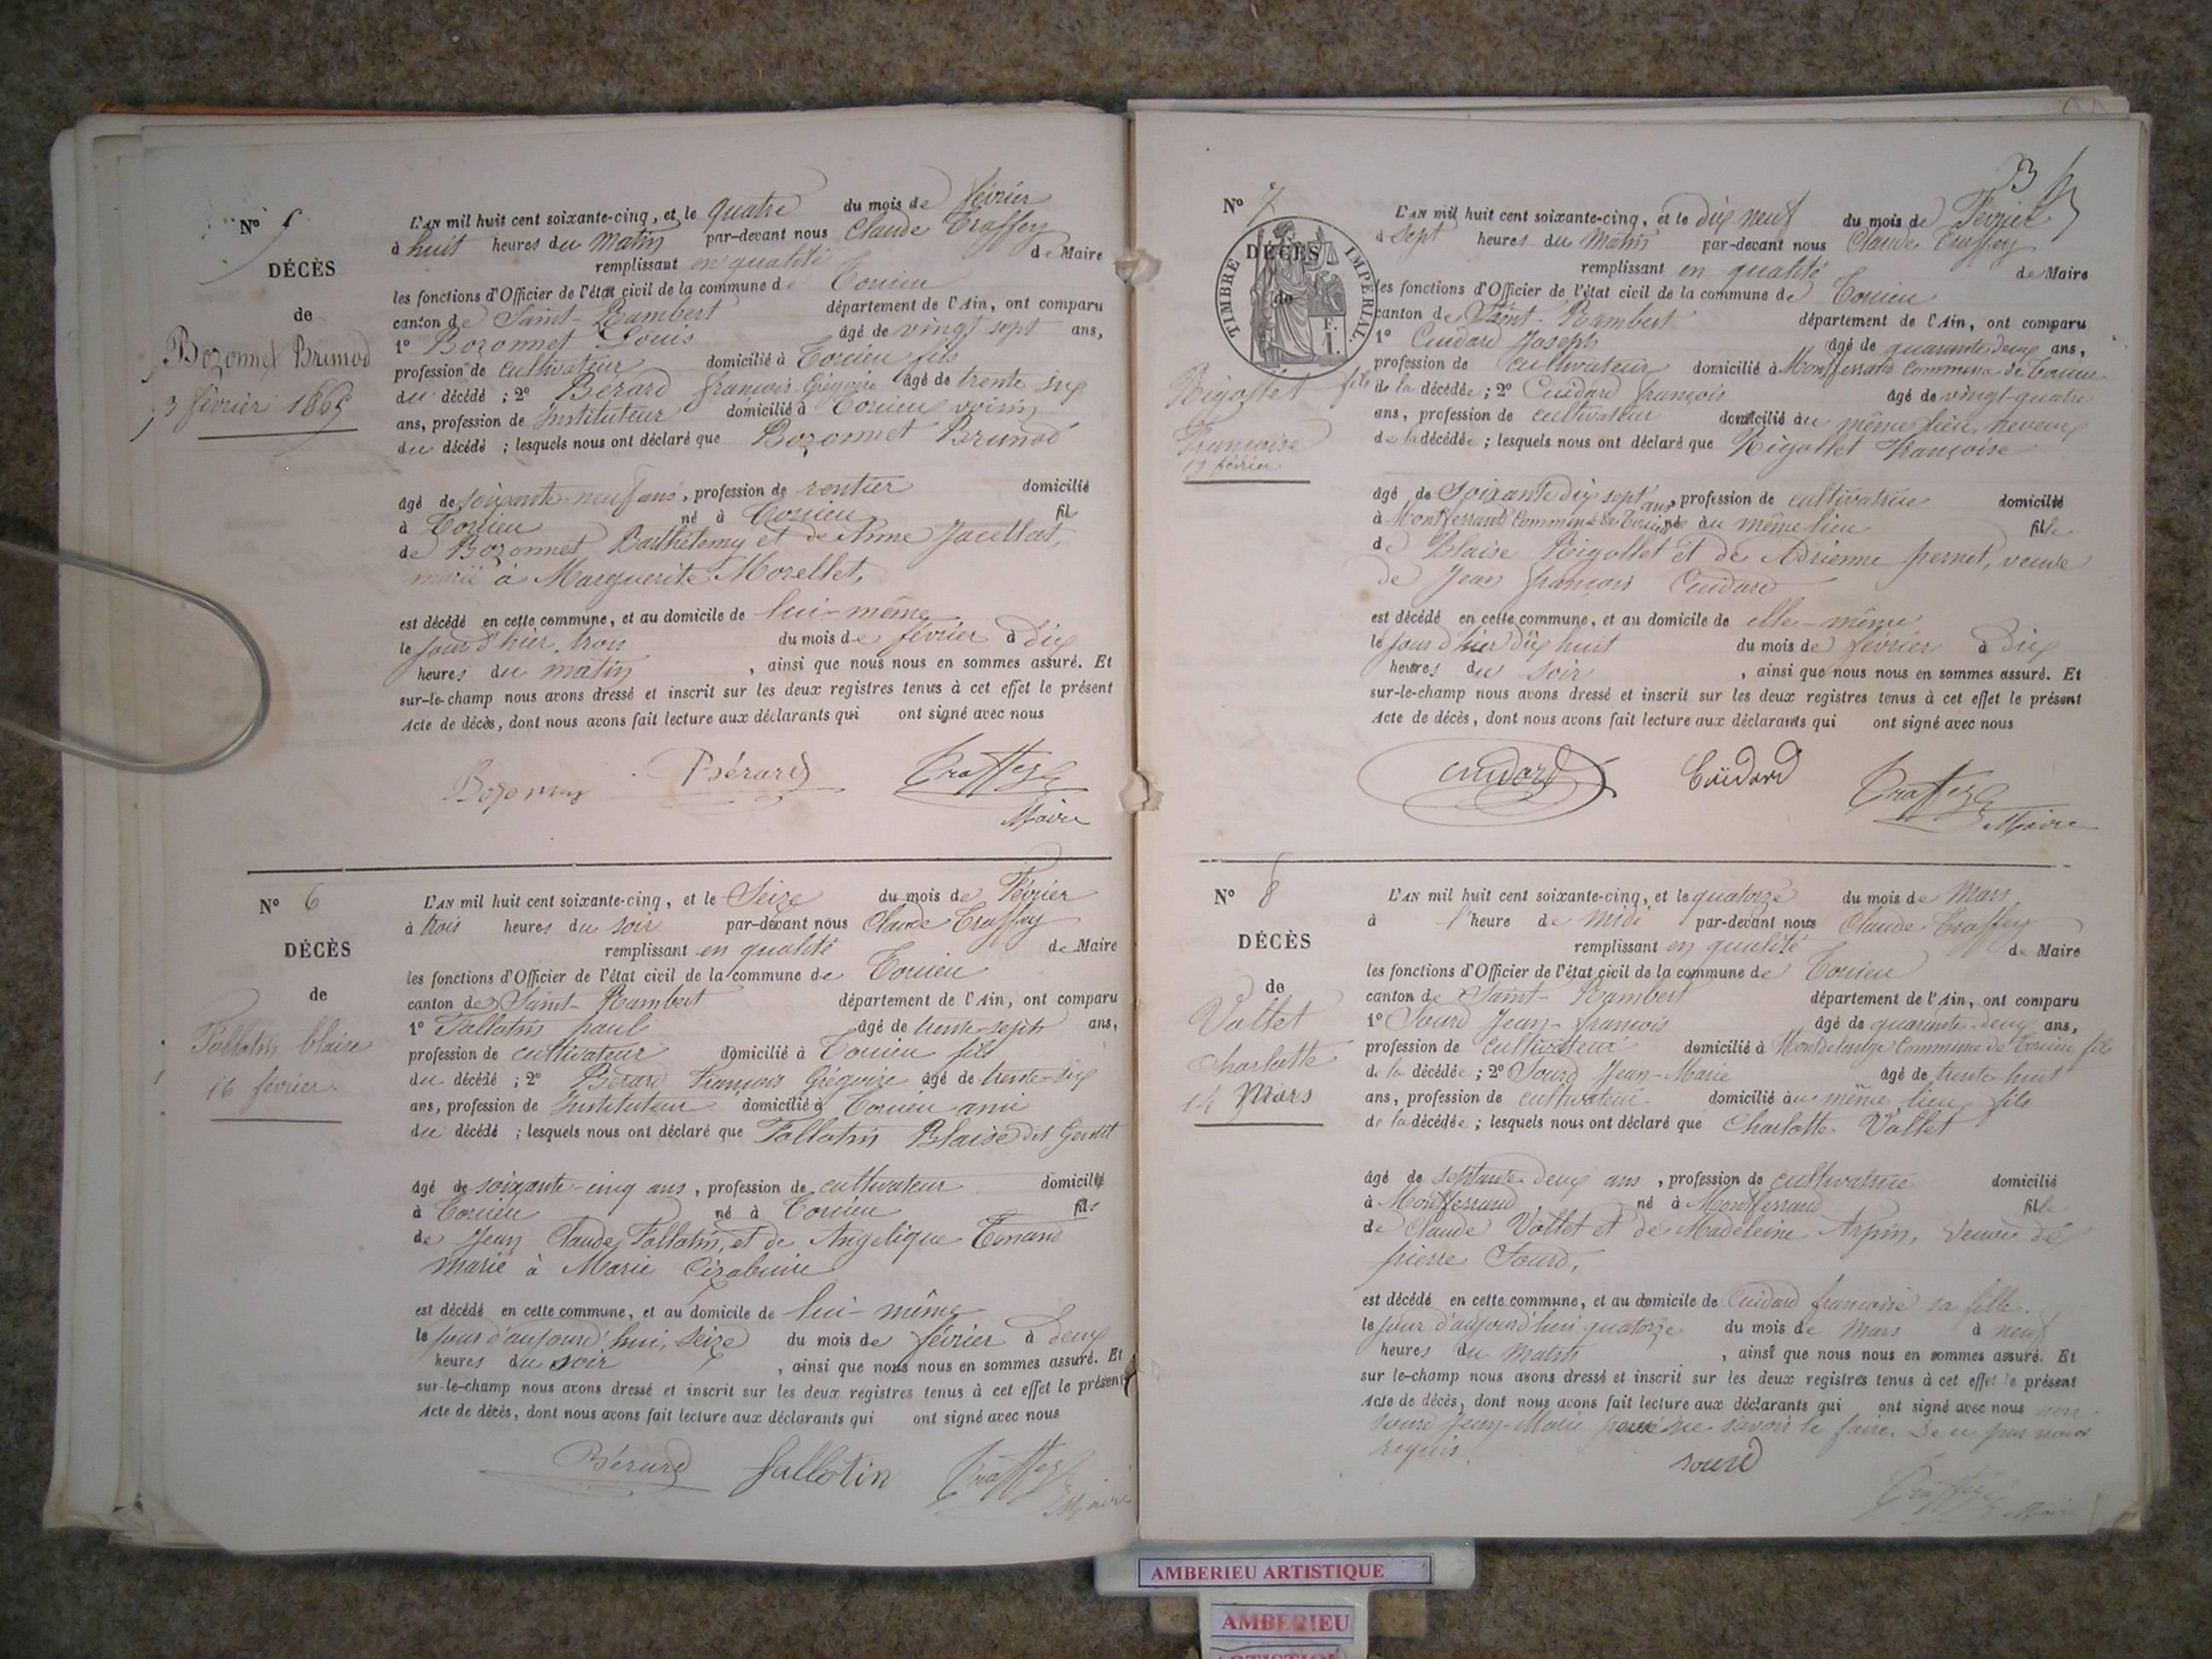 N° 5
DÉCÈS
de
Bozonnet Brunod
3 février 1865
L'AN mil huit cent soixante-cinq, et le quatre du mois de février
à huit heures du matin par-devant nous Claude Traffey
remplissant en qualité de Maire
les fonctions d'Officier de l'état civil de la commune de Torcieu
canton de Saint-Rambert département de l'Ain, ont comparu
1° Bozonnet Louis âgé de vingt sept ans,
profession de cultivateur domicilié à Torcieu fils
du décédé ; 2° Bérard françois Grégoire âgé de trente six
ans, profession de Instituteur domicilié à Torcieu voisin
du décédé ; lesquels nous ont déclaré que Bozonnet Brunod
âgé de soixante-neuf ans, profession de rentier domicilié
à Torcieu né à Torcieu fil
de Bozonnet Barthélemy et de Anne Jacellat,
marié à Marguerite Morellet,
est décédé en cette commune, et au domicile de lui-même
le jour d'hier, trois du mois de février à dix
heures du matin, ainsi que nous nous en sommes assuré. Et
sur-le-champ nous avons dressé et inscrit sur les deux registres tenus à cet effet le présent
Acte de décès, dont nous avons fait lecture aux déclarants qui ont signé avec nous
Bérard Traffey
Maire
N° 6
DÉCÈS
de
Tallotin blaise
16 février.
L'AN mil huit cent soixante-cinq, et le Seize du mois de Février
à trois heures du soir par-devant nous Claude Traffey
remplissant en qualité de Maire
les fonctions d'Officier de l'état civil de la commune de Torcieu
canton de Saint-Rambert département de l'Ain, ont comparu
1° Tallotin paul âgé de trente sept ans,
profession de cultivateur domicilié à Torcieu fils
du décédé ; 2° Bérard François Grégoire âgé de trente-six
ans, profession de Instituteur domicilié à Torcieu ami
du décédé ; lesquels nous ont déclaré que Tallotin Blaise dit Gentit
âgé de soixante-cinq ans, profession de cultivateur domicilié
à Torcieu né à Torcieu fils
de Jean Claude Tallotin, et de Angelique Tenand
marié à Marie
est décédé en cette commune, et au domicile de lui-même
le jour d'aujourd'hui, seize du mois de février à deux
heures du soir, ainsi que nous nous en sommes assuré. Et
sur-le-champ nous avons dressé et inscrit sur les deux registres tenus à cet effet le présent
Acte de décès, dont nous avons fait lecture aux déclarants qui ont signé avec nous
Bérard Tallotin Traffey
Maire
3
N° 7
DÉCÈS
de
TIMBRE IMPÉRIAL.
Rigollet
Françoise
L'AN mil huit cent soixante-cinq, et le dix neuf du mois de Février
à sept heures du matin par-devant nous Claude Traffey
remplissant en qualité de Maire
les fonctions d'Officier de l'état civil de la commune de Torcieu
canton de Saint-Rambert département de l'Ain, ont comparu
1° Cuidard Joseph âgé de quarante deux ans,
profession de cultivateur domicilié à Montferrand commune de Torcieu
fils de la décédée ; 2° Cuidard françois âgé de vingt-quatre
ans, profession de cultivateur domicilié au même lieu, neveux
de la décédée ; lesquels nous ont déclaré que Rigollet françoise
âgé de Soixante dix sept ans, profession de cultivatrice domicilié
à Montferrand Commune de Torcieu née au même lieu fille
de Blaise Rigollet et de Adrienne pernet, veuve
de Jean françois Cuidard
est décédé en cette commune, et au domicile de elle-même
le jour d'hier dix huit du mois de février à Dix
heures du soir, ainsi que nous nous en sommes assuré. Et
sur-le-champ nous avons dressé et inscrit sur les deux registres tenus à cet effet le présent
Acte de décès, dont nous avons fait lecture aux déclarants qui ont signé avec nous
Cuidard Cuidard Traffey
Maire
N° 8
DÉCÈS
de
Vallet
Charlotte
14 Mars
L'AN mil huit cent soixante-cinq, et le quatorze du mois de Mars
à 1 heure de midi par-devant nous Claude Traffey
remplissant en qualité de Maire
les fonctions d'Officier de l'état civil de la commune de Torcieu
canton de Saint-Rambert département de l'Ain, ont comparu
1° Sourd Jean-françois âgé de quarante-deux ans,
profession de cultivateur domicilié à Commune de Torcieu fils
de la décédée ; 2° Sourd Jean-Marie âgé de trente huit
ans, profession de cultivateur domicilié au même lieu fils
de la décédée ; lesquels nous ont déclaré que Charlotte Vallet
âgé de septante deux ans, profession de cultivatrice domicilié
à Montferrand né à Montferrand fille
de Claude Vallet et de Madeleine Arpin, veuve de
pierre Sourd,
est décédé en cette commune, et au domicile de Cuidard françoise sa fille.
le jour d'aujourd'hui quatorze du mois de Mars à neuf
heures du Matin, ainsi que nous nous en sommes assuré. Et
sur-le-champ nous avons dressé et inscrit sur les deux registres tenus à cet effet le présent
Acte de décès, dont nous avons fait lecture aux déclarants qui ont signé avec nous non
sourd Jean-Marie pour ne savoir le faire. De ce par nous
requis.
sourd
Traffey Maire
AMBERIEU ARTISTIQUE
AMBERIEU
ARTISTIQUE